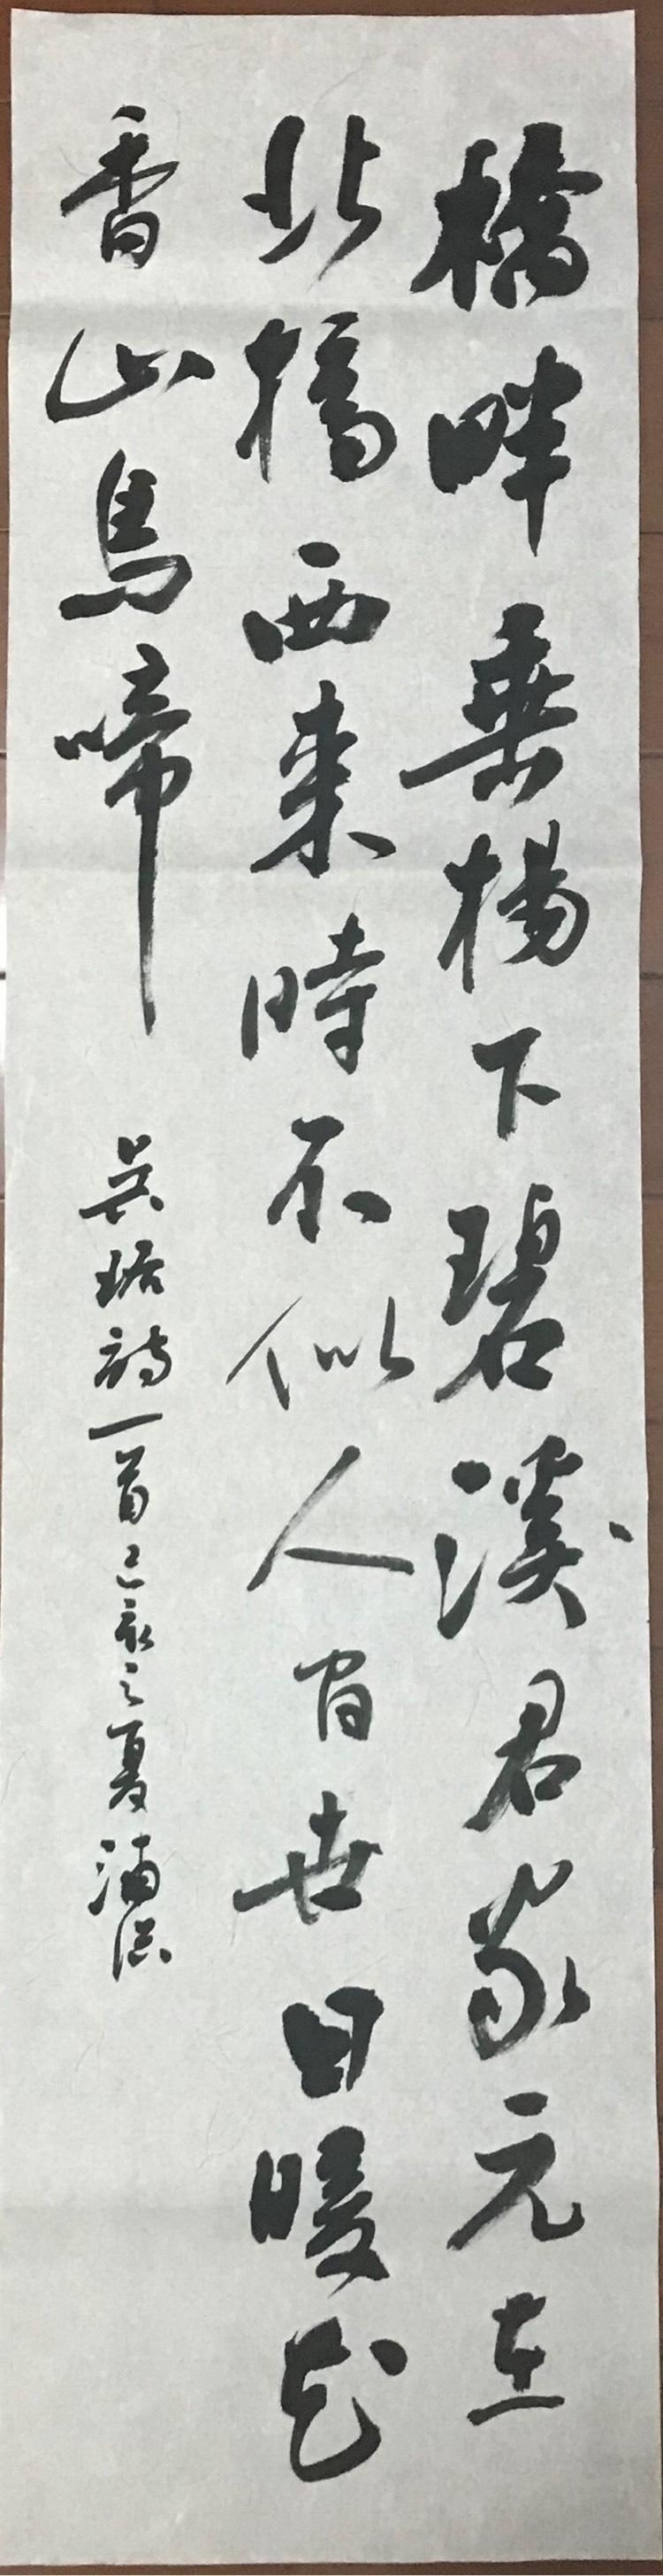 橋畔垂楊下碧溪君家元在
北橋西來時不似人間世日暖花
香山鳥啼 吳琚詩一首己亥之夏